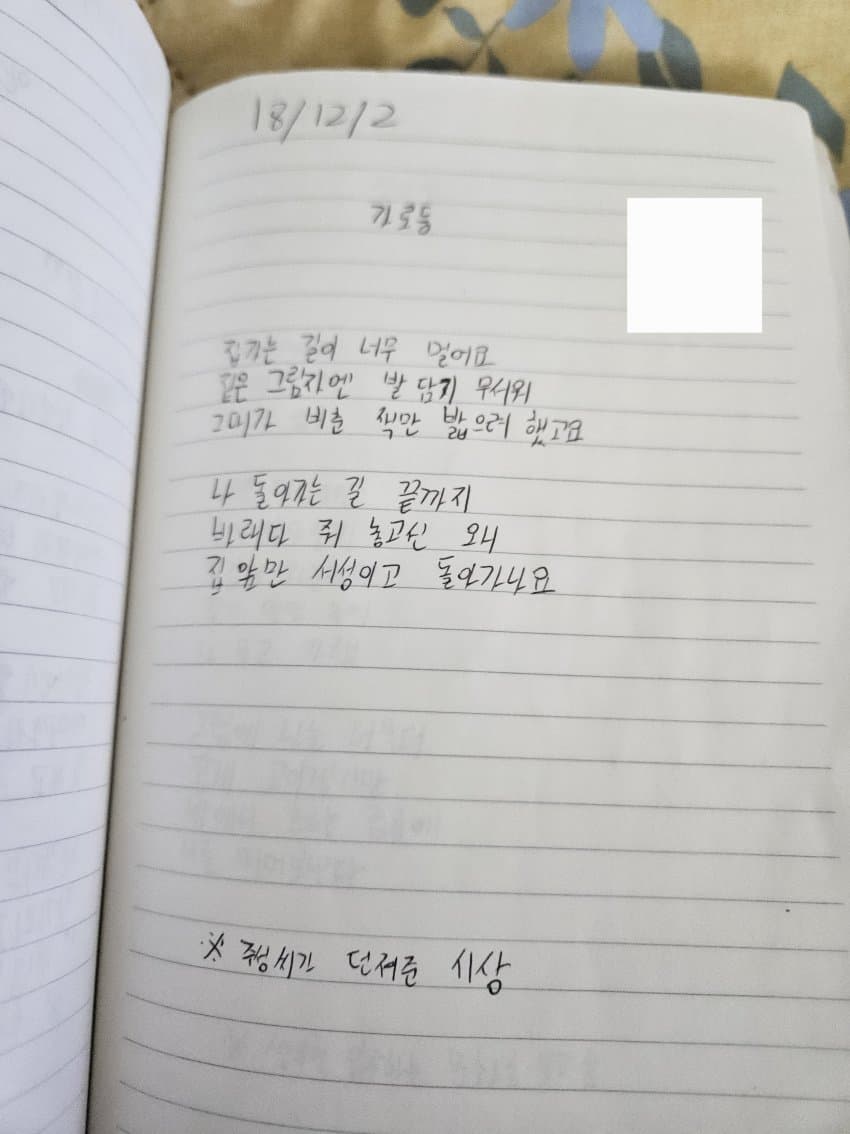 18/12/2
가로등
집가는 길이 너무 멀어요
짙은 그림자엔 발 담기 무서워
그대가 비춘 쪽만 밟으려 했고요
나 돌아가는 길 끝까지
바래다 줘 놓고신 왜
집 앞만 서성이고 돌아가나요
※ 씨가 던져준 시상